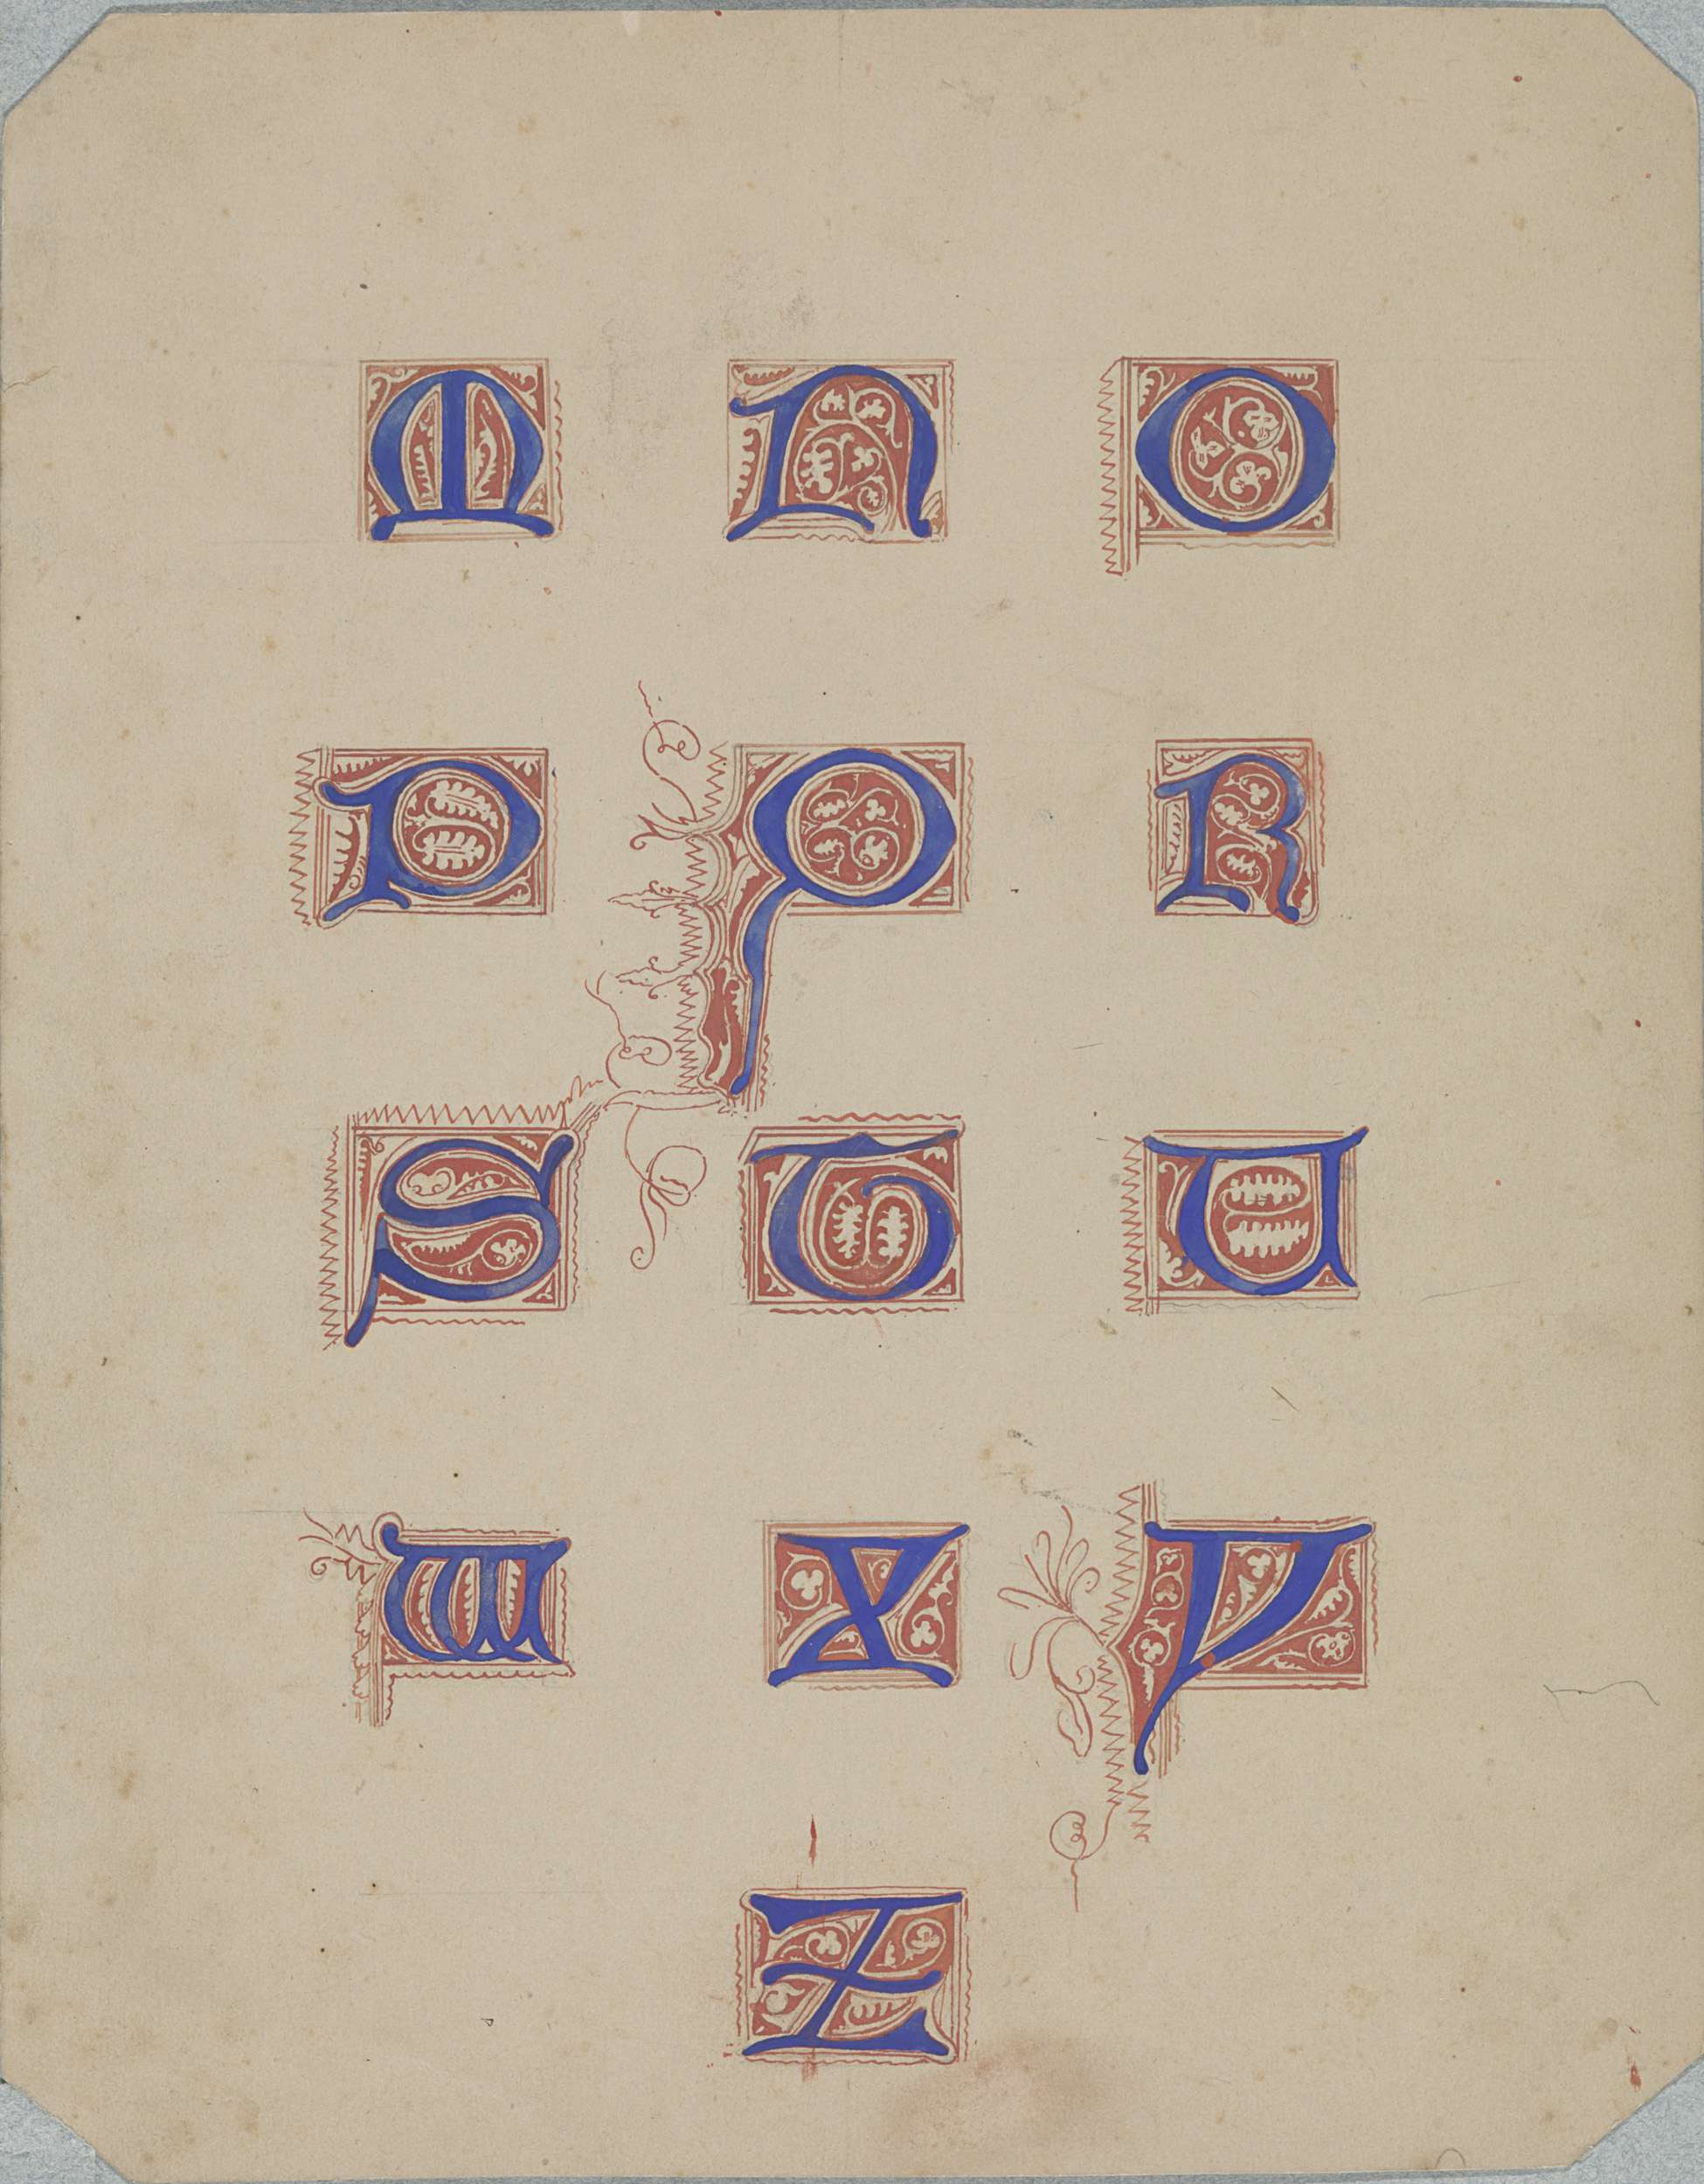 M N O
P Q R
S T U
W X Y
Z